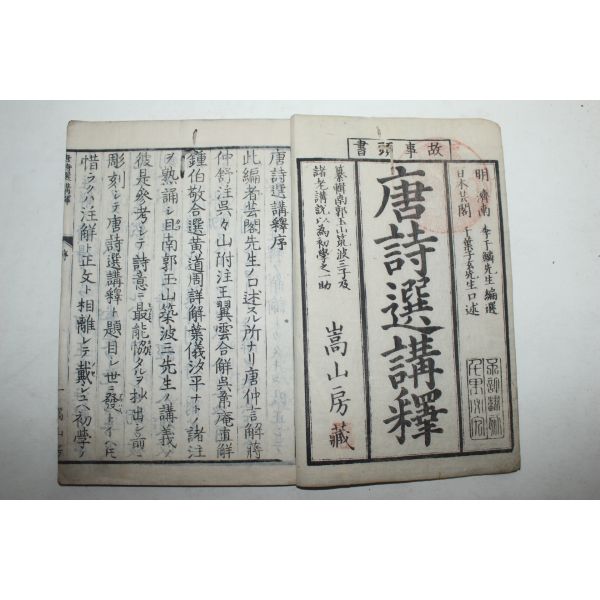 故事頭書
明濟南 李于鱗先生編選
日本芸閣 千葉子玄先生口述
唐詩選講釋
纂輯南郭玉山筑波三子及
諸老講説以為初學之一助
嵩山房藏
唐詩選講釋序
此編者芸閣先生ノ口述スル所ナリ唐仲言解蔣
仲舒注呉々山附注王翼雲合解呉䋣庵直解
鍾伯敬合選黄道周詳解葉儀汐平ナトノ諸注
ヲ熟誦シ且南郭玉山築波三先生ノ講義ヲ
彼是参考シテ詩意ニ最能協タルヲ抄出シ前ニ
彫刻シテ唐詩選講釋ト題目シ世ニ發トイヘ𪜈
惜ラクハ注解ト正文ト相離レテ戴シユヘ初學ノ